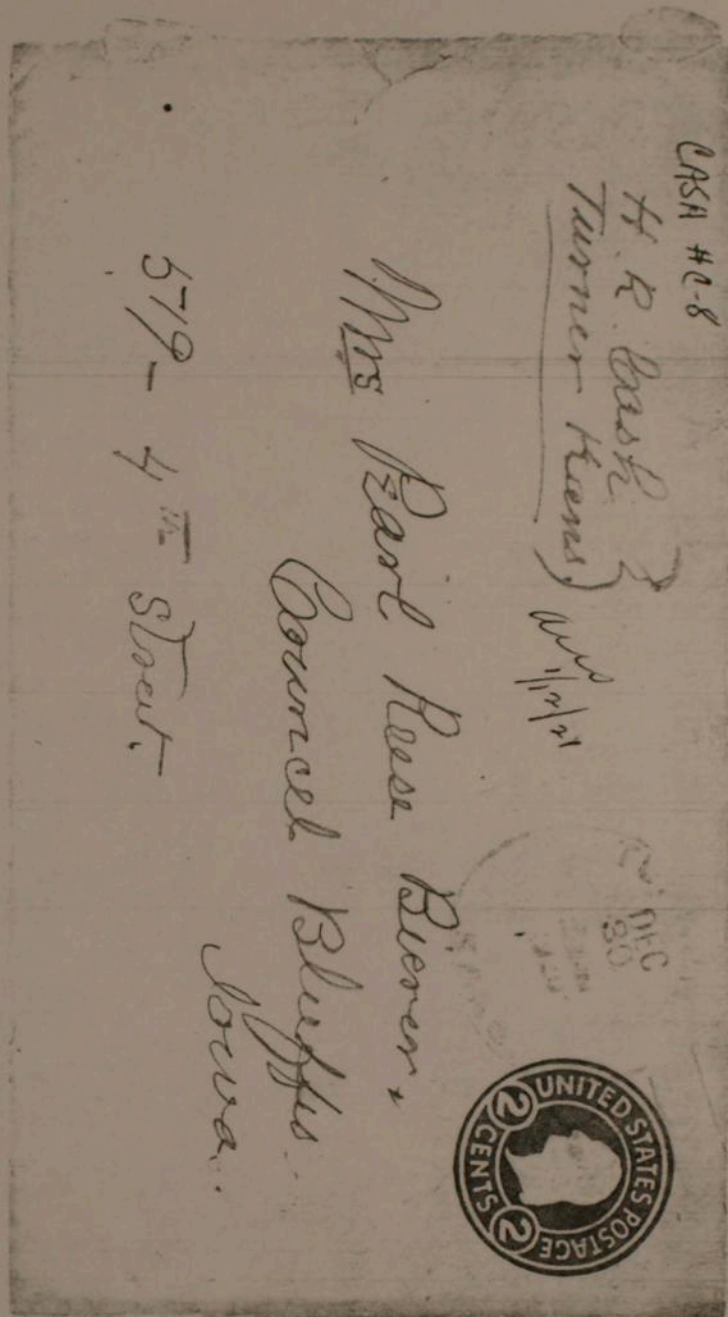 CASH HC-8
H. R. Cash
Turner Kans.
1/12/21
Mrs Pearl Reese
Councel Bluffs
Iowa.
519 - 4th Street.
DEC
30
UNITED STATES POSTAGE
2 CENTS 2